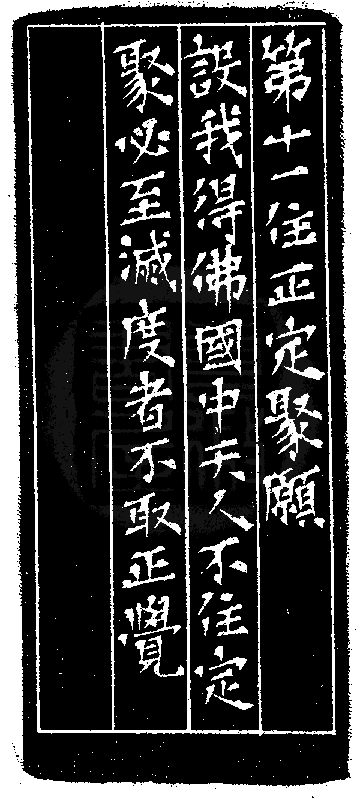 第十一住正定聚願
設我得佛國中天人不住定
聚必至滅度者不取正覺